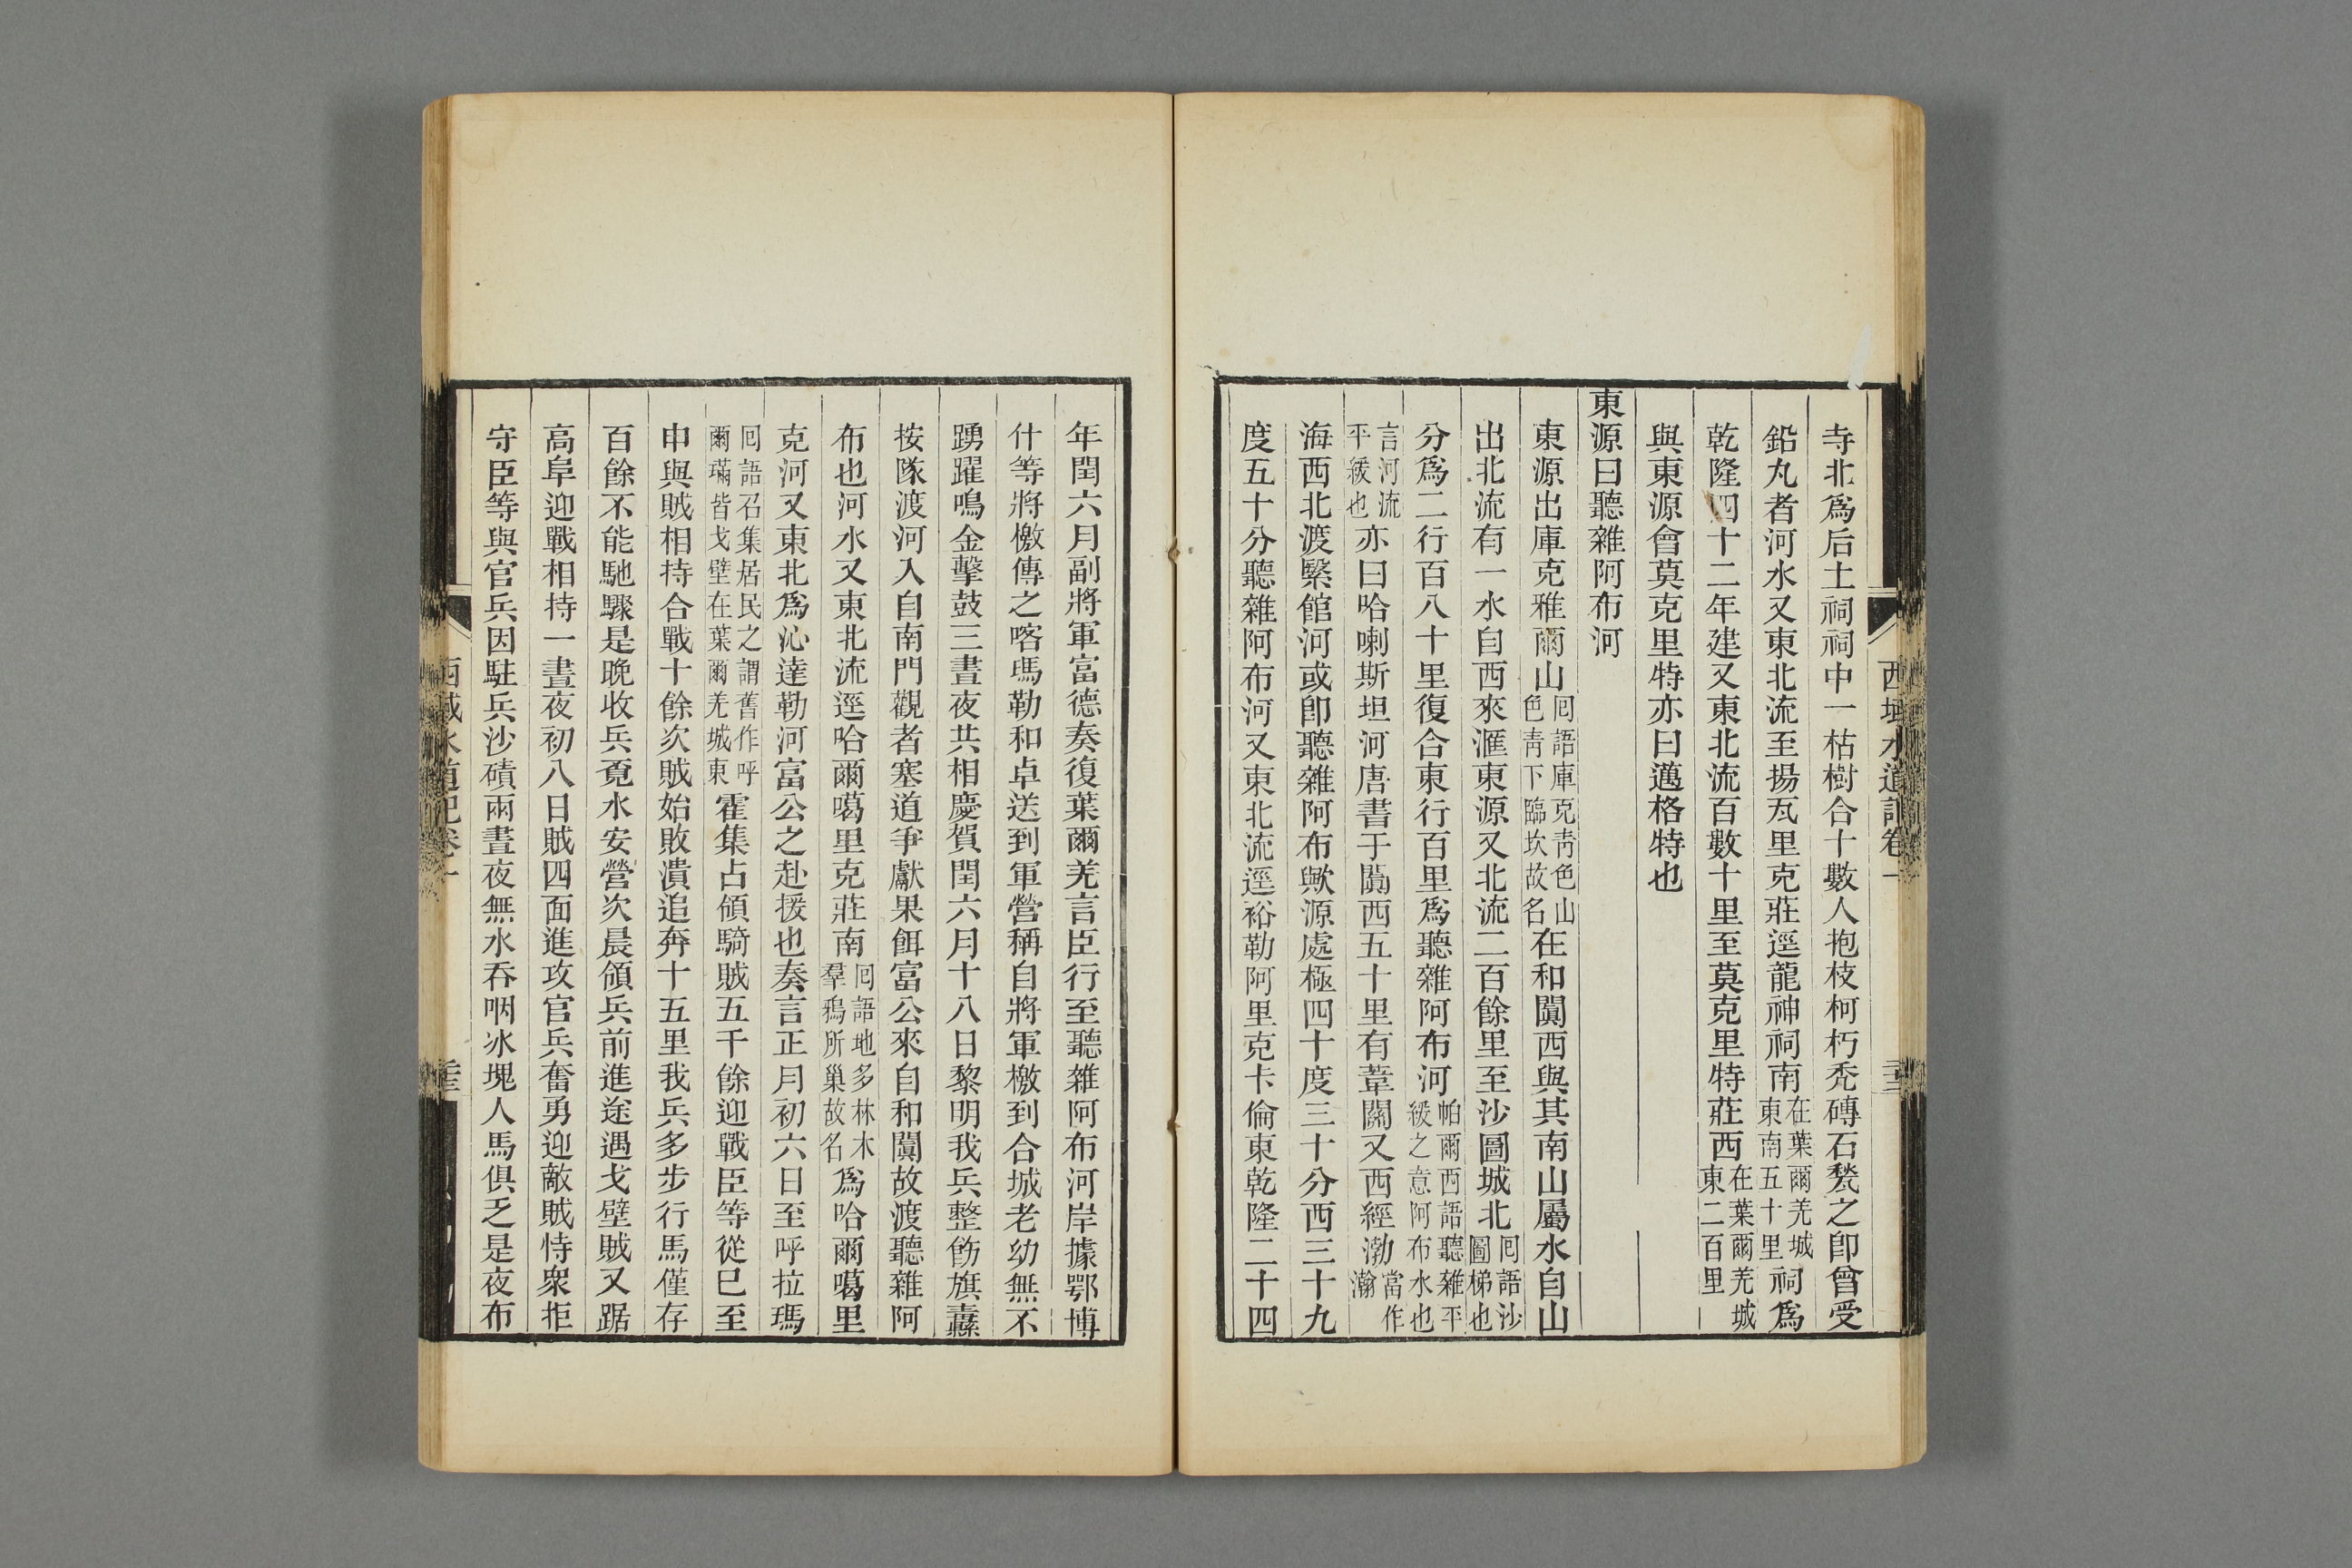 寺北爲后土祠祠中一枯樹合十數人抱枝柯朽禿磚石甃之卽曾受
鉛丸者河水又東北流至揚瓦里克莊逕龍神祠南在葉爾羌城東南五十里祠爲
乾隆四十二年建又東北流百數十里至莫克里特莊西在葉爾羌城東二百里
與東源會莫克里特亦曰邁格特也
東源曰聽雜阿布河
東源出庫克雅爾山回語庫克靑色山色靑下臨坎故名在和闐西與其南山屬水自山
出北流有一水自西來滙東源又北流二百餘里至沙圖城北回語沙圖梯也
分爲二行百八十里復合東行百里爲聽雜阿布河帕爾西語聽雜平緩之意阿布水也
言河流平緩也亦曰哈喇斯坦河唐書于闐西五十里有葦關又西經渤當作瀚
海西北渡繄館河或卽聽雜阿布歟源處極四十度三十分西三十九
度五十分聽雜阿布河又東北流逕裕勒阿里克卡倫東乾隆二十四
西域水道記卷一
年閏六月副將軍富德奏復葉爾羌言臣行至聽雜阿布河岸據鄂博
什等將檄傳之喀瑪勒和卓送到軍營稱自將軍檄到合城老幼無不
踴躍鳴金擊鼓三晝夜共相慶賀閏六月十八日黎明我兵整飭旗纛
按隊渡河入自南門觀者塞道爭獻果餌富公來自和闐故渡聽雜阿
布也河水又東北流逕哈爾噶里克莊南回語地多林木羣鴉所巢故名爲哈爾噶里
克河又東北爲沁達勒河富公之赴援也奏言正月初六日至呼拉瑪
回語召集居民之謂舊作呼爾璊皆戈壁在葉爾羌城東霍集占領騎賊五千餘迎戰臣等從巳至
申與賊相持合戰十餘次賊始敗潰追奔十五里我兵多步行馬僅存
百餘不能馳驟是晚收兵覔水安營次晨領兵前進途遇戈壁賊又踞
高阜迎戰相持一晝夜初八日賊四面進攻官兵奮勇迎敵賊恃衆拒
守臣等與官兵因駐兵沙磧兩晝夜無水吞咽冰塊人馬俱乏是夜布
西域水道記卷一